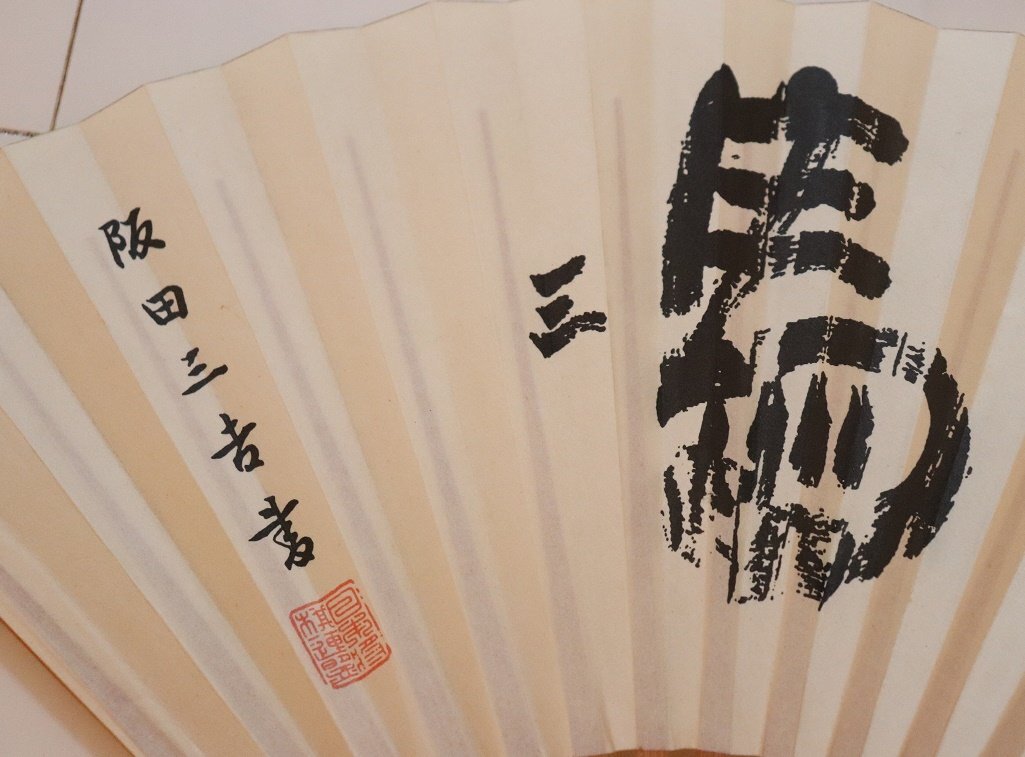 馬
三
阪田三吉書